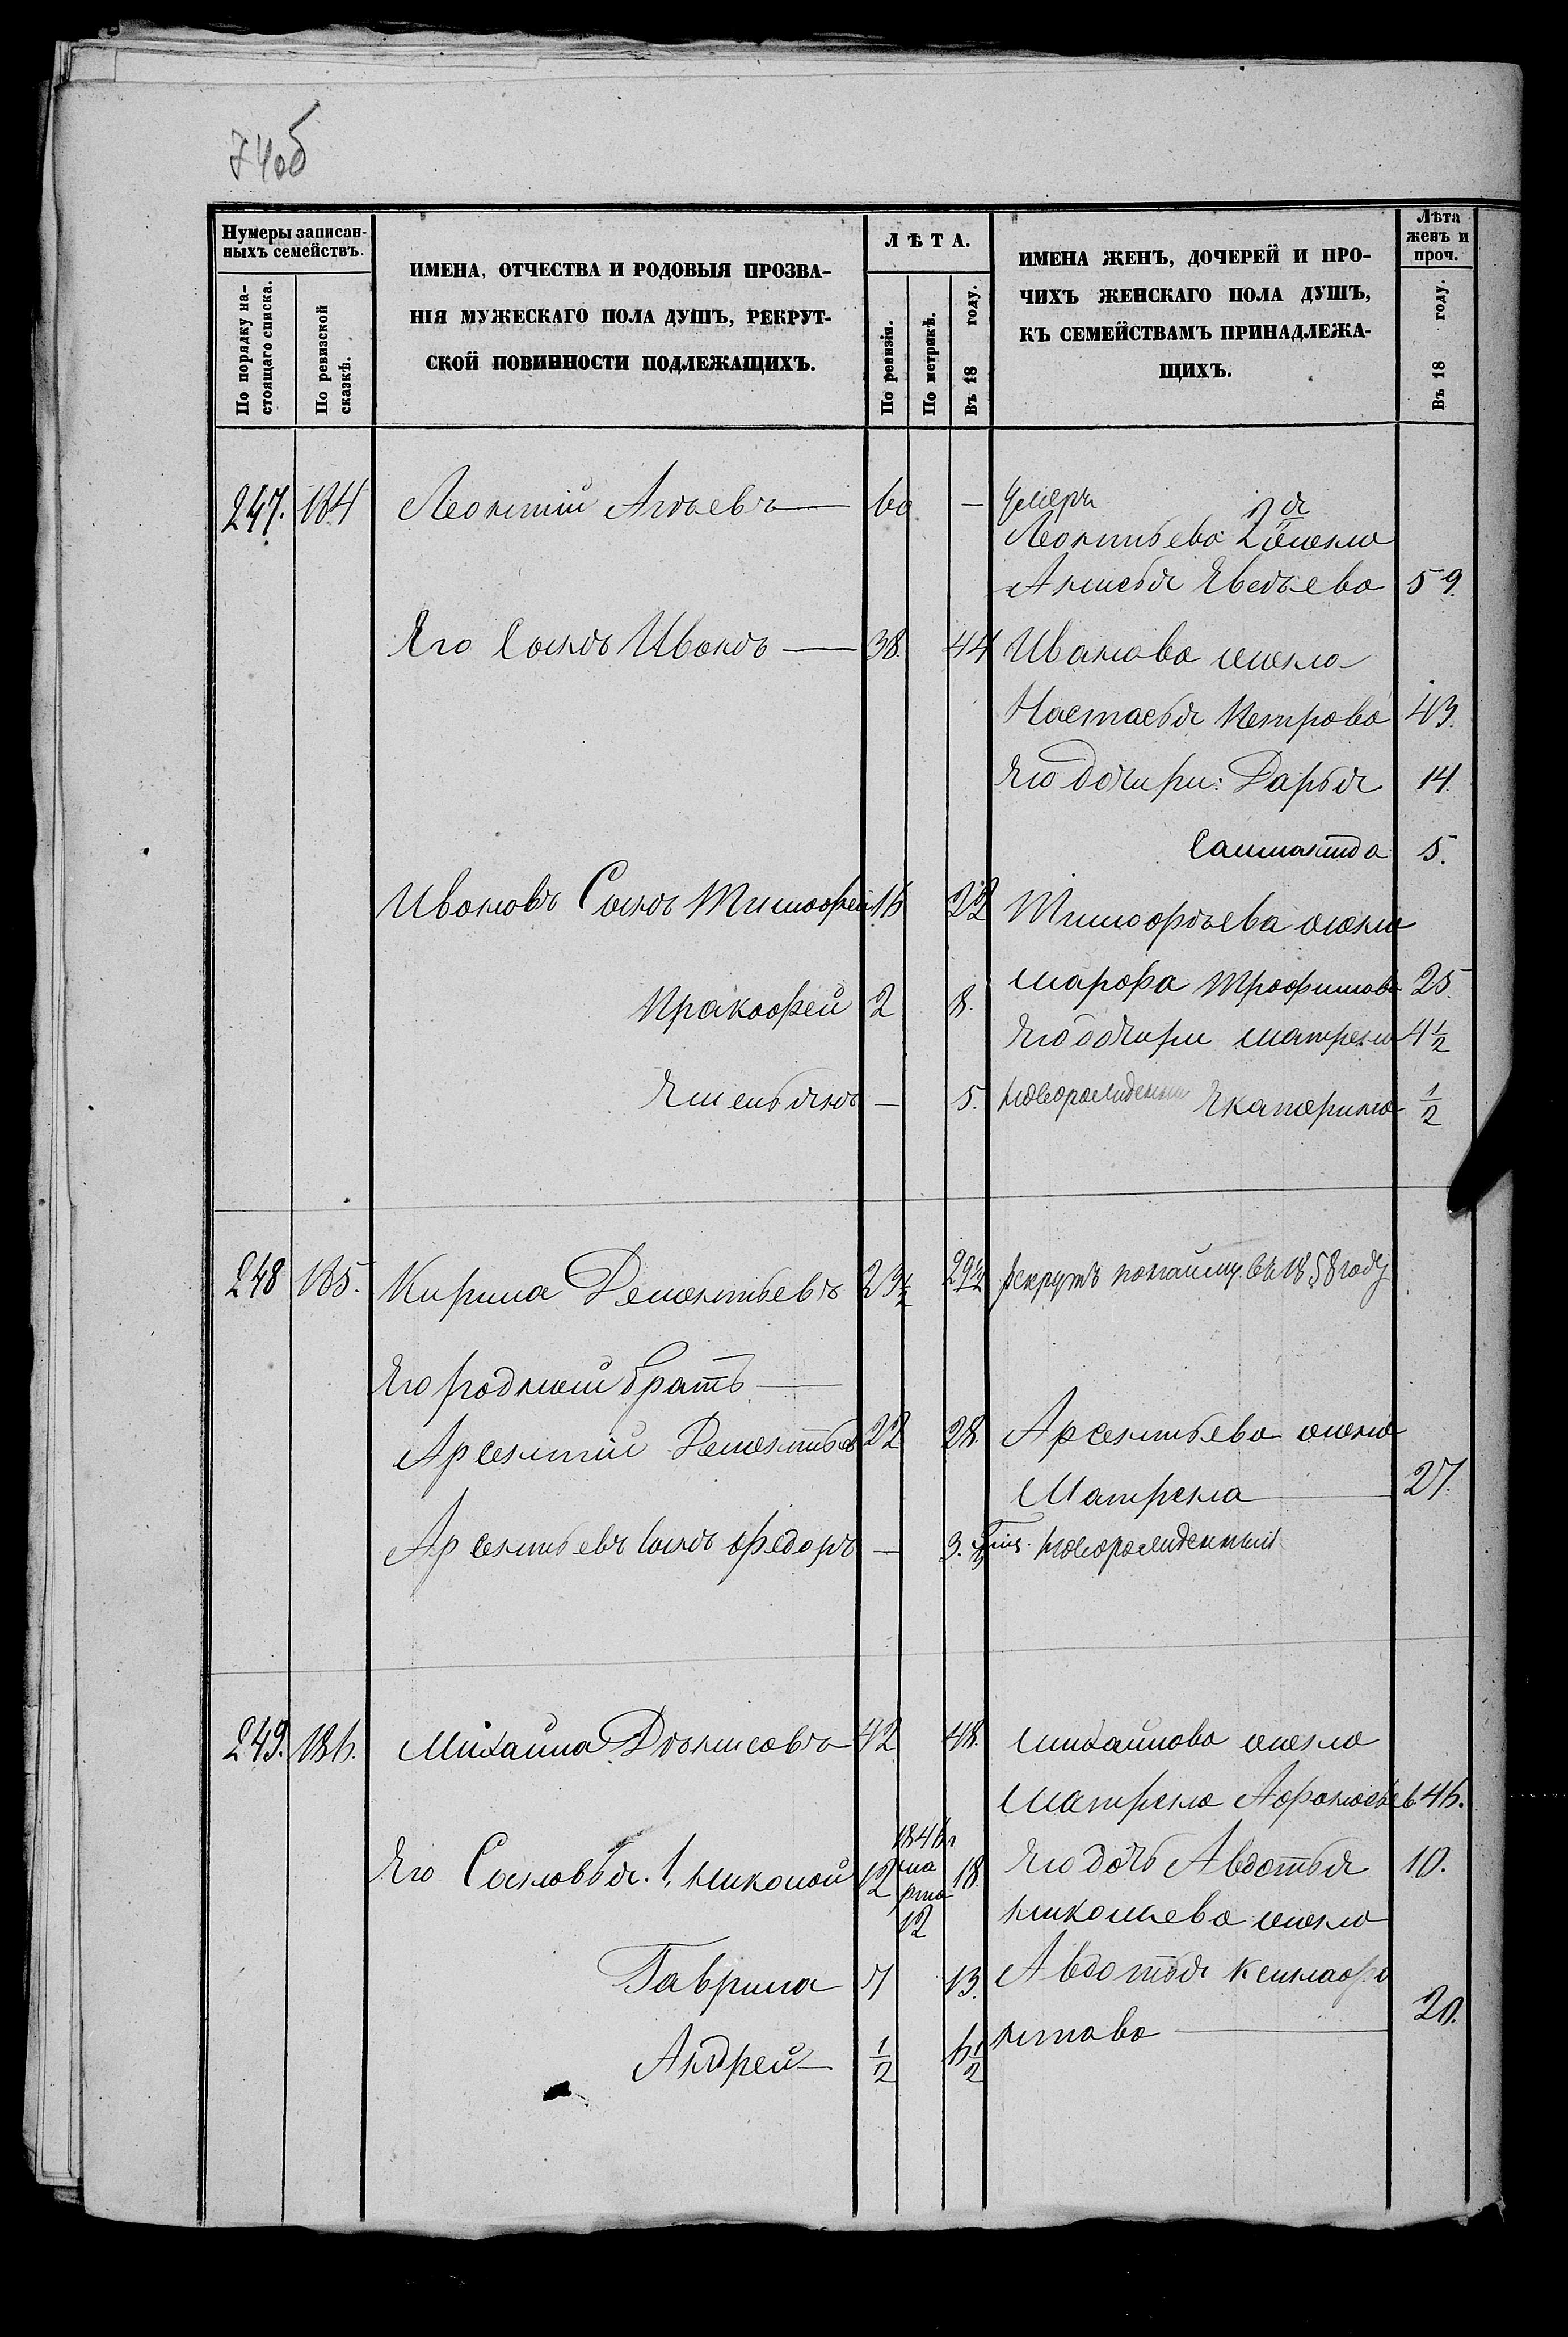 74об
Нумеры записан-
ныхъ семействъ.
По порядку на-
стоящаго списка.
По ревизской
сказкѣ.
ИМЕНА, ОТЧЕСТВА И РОДОВЫЯ ПРОЗВА-
НІЯ МУЖЕСКАГО ПОЛА ДУШЪ, РЕКРУТ-
СКОЙ ПОВИННОСТИ ПОДЛЕЖАЩИХЪ.
ЛѢТА.
По ревизіи.
По метрикѣ.
Въ 18 году.
ИМЕНА ЖЕНЪ, ДОЧЕРЕЙ И ПРО-
ЧИХЪ ЖЕНСКАГО ПОЛА ДУШЪ,
КЪ СЕМЕЙСТВАМЪ ПРИНАДЛЕЖА-
ЩИХЪ.
Лѣта
женъ и
проч.
Въ 18 году.
247. 184 Леонтій 60 — умеръ
Леонтьева 2я жена
59.
Его Сынъ Иванъ — 38. 44 Иванова жена
Настасья Петрова 43.
Его дочири: Дарья 14.
5.
Ивановъ Сынъ Тимофей 16 22 Тимофѣева жена
Марфа Трофимова 25.
Пракофей 2 8.
Его дочири Матрена 4 1/2
Емельянъ — 5. новорожденный Екатерина 1/2
248 185. Кирила Дементьевъ 23 1/2 29 1/2 рекрутъ по найму въ 1858 году
Его родный братъ —
Арсентій Дементьев 22 28. Арсентьева жена
Матрена 27.
Арсентьевъ Сынъ Федоръ — 3. новорожденный
249. 186. Михаила Дѣнисовъ 42 48. Михайлова жена
Матрена Афонасьев. 46.
Его Сыновья. 1, Николай 12 1846 г 18 Его дочь Авдотья 10.
ма
рта
12
Николаева жена
Гаврила 7 13. Авдотья Ксинафо
нтова 20.
Андрей 1/2 6 1/2